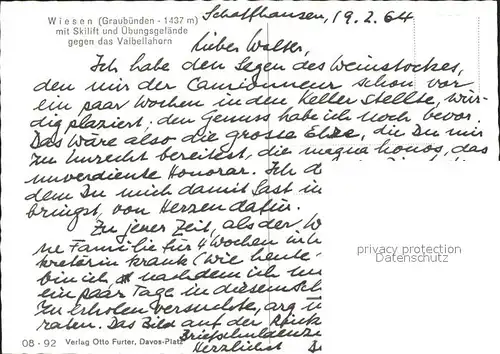 Wiesen (Graubünden - 1437 m)
mit Skilift und Übungsgelände
gegen das Valbellahorn
Schaffhausen, 19.2.64
Lieber Walter,
Ich habe den Segen des Weinstockes,
den mir der Camionneur schon vor
ein paar Wochen in den Keller stellte, wür-
dig plaziert; den Genuss habe ich noch bevor.
Das wäre also die grosse Ehre, die Du mir
zu Unrecht bereitest, die magna honos, das
unverdiente Honorar. Ich d
dem Du mich damit fast in
bringst, von Herzen dafür.
Zu jener Zeit, als der W
ne Familie für 4 Wochen in
kretärin krank (wie heute
bin ich, nachdem ich
ein paar Tage in diesem
zu erholen versuchte, arg
raten. Das Bild auf der Rück
Briefschulden
Herzlichst
privacy protection
Datenschutz
08 - 92 Verlag Otto Furter, Davos-Platz